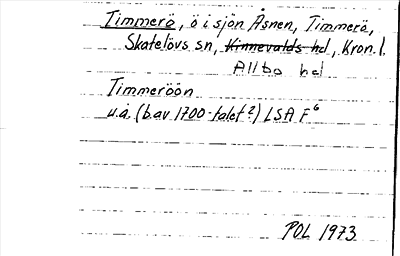 Timmerö, ö i sjön Åsnen, Timmerö,
Skatelövs sn, Kinnevalds hd, Kron. l.
Allbo hd
Timmeröön
u.å. (b. av 1700-talet?) LSA F6
POL 1973